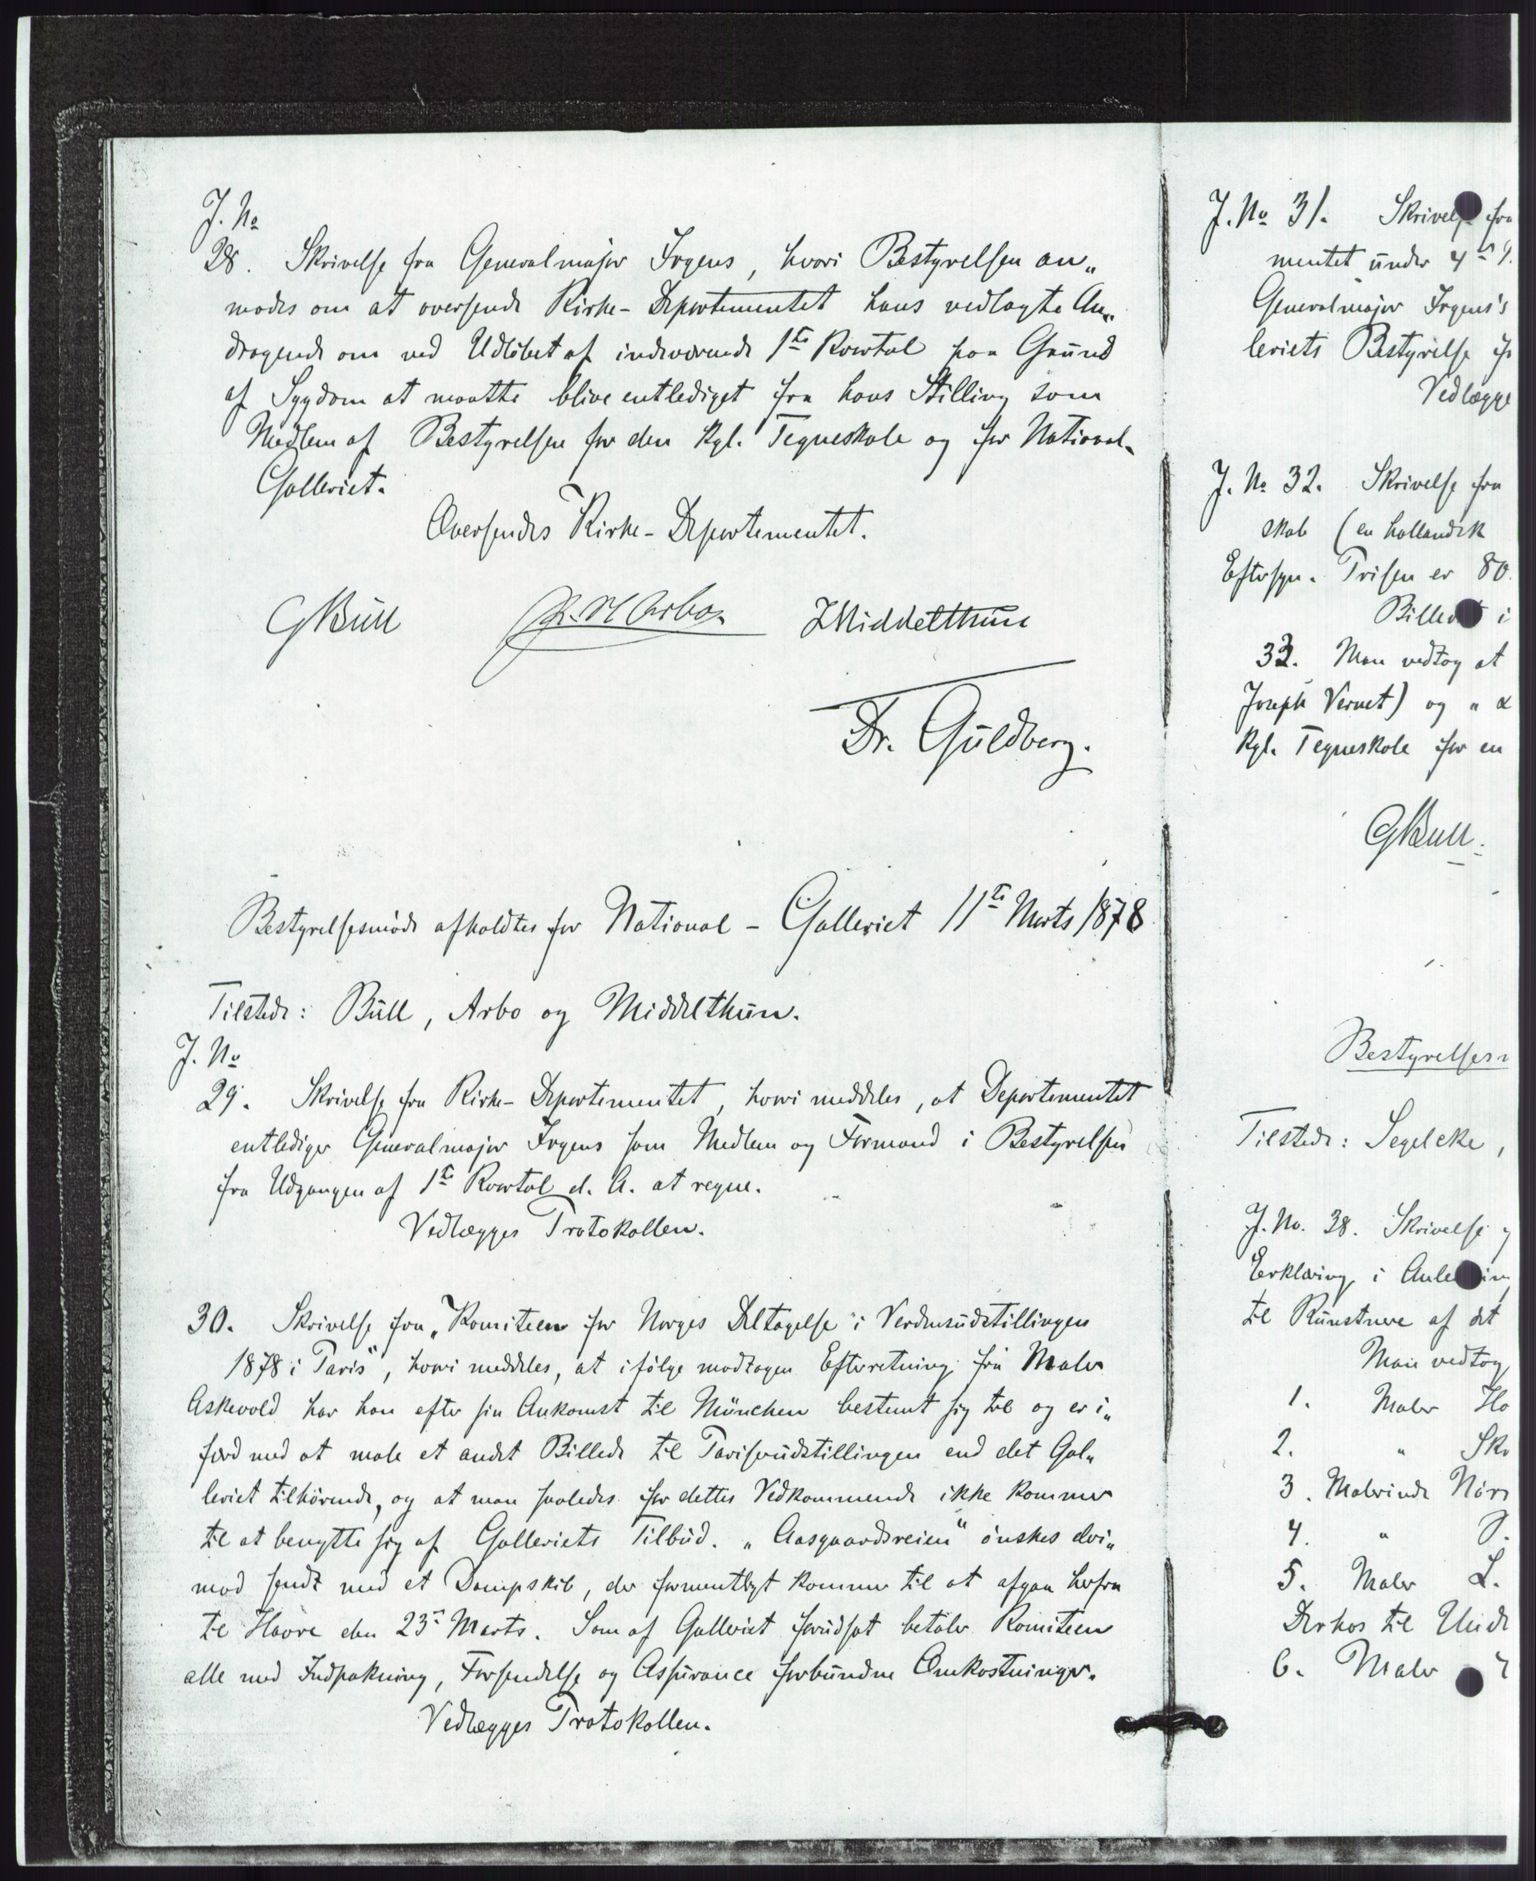 J. No
28. Skrivelse fra Generalmajor Irgens, hvori Bestyrelsen an„
modes om at oversende Kirke-Departementet hans vedlagte An„
dragende om ved Udløbet af indeværende 1ste Kvartal paa Grund
af Sygdom at maatte blive entlediget fra hans Stilling som
Medlem af Bestyrelsen for den kgl. Tegneskole og for National„
Galleriet.
Oversendes Kirke-Departementet.
GBull P. N Arbo. JMiddelthun
Dr. Guldberg.
Bestyrelsesmøde afholdtes for National-Galleriet 11te Marts 1878
Tilstede: Bull, Arbo og Middelthun.
J. No
29. Skrivelse fra Kirke-Departementet, hvori meddeles, at Departementet
entlediger Generalmajor Irgens som Medlem og Formand i Bestyrelsen
fra Udgangen af 1ste Kvartal d. A. at regne.
Vedlægges Protokollen.
30. Skrivelse fra „Komiteen for Norges Deltagelse i Verdensudstillingen
1878 i Paris“, hvori meddeles, at ifølge modtagen Efterretning fra Maler
Askevold har han efter sin Ankomst til München bestemt sig til og er i„
færd med at male et andet Billede til Pariserudstillingen end det Gal„
leriet tilhørende, og at man saaledes for dettes Vedkommende ikke kommer
til at benytte sig af Galleriets Tilbud. „Aasgaardsreien“ ønskes deri„
mod sendt med et Dampskib, der formentligt kommer til at afgaa herfra
til Havre den 23de Marts. Som af Galleriet forudsat betaler Komiteen
alle med Indpakning, Forsendelse og Assurance forbundne Omkostninger.
Vedlægges Protokollen.
J. No 31. Skrivelse fra
mentet under 4de
Generalmajor Irgens's
leriets Bestyrelse
Vedlægge
J. No 32. Skrivelse fra
skab (en hollandsk
Eftersyn. Prisen er 80
Billedet i
33. Man vedtog at
Joseph Vernet) og „
kgl. Tegneskole for en
GBull.
Bestyrelses
Tilstede: Segelcke,
J. No. 38. Skrivelse
Erklæring i Anledning
til Kunstnere af det
Man vedtog
1. Maler Ho
2. „ Sk
3. Malerinde
4. „
5. Maler L.
Derhos til Unde
6. Maler